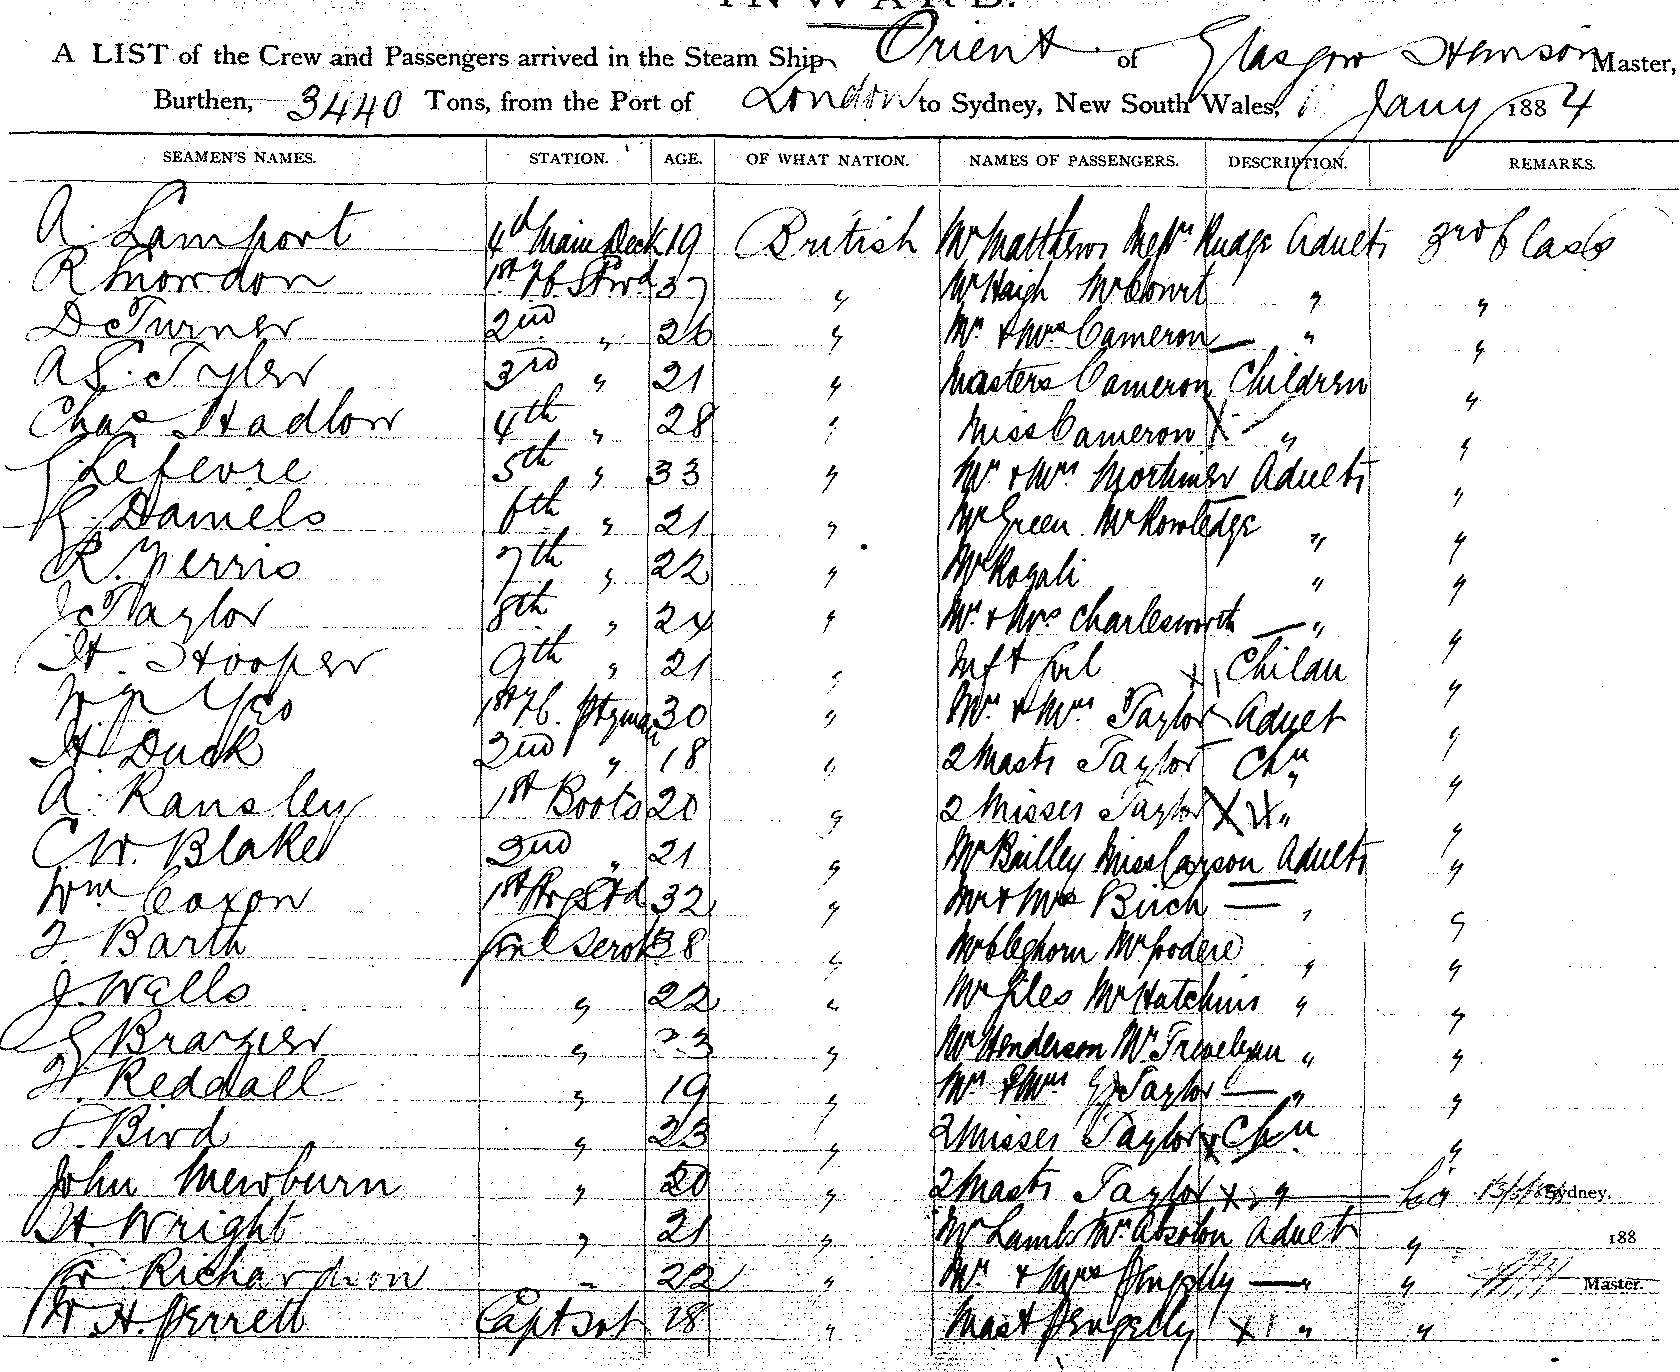 INWARD.
A LIST of the Crew and Passengers arrived in the Steam Ship Orient of Glasgow Master,
Burthen, 3440 Tons, from the Port of London to Sydney, New South Wales, 1 Jany 1884
SEAMEN'S NAMES. STATION. AGE. OF WHAT NATION. NAMES OF PASSENGERS. DESCRIPTION. REMARKS.
A. Lamport 4th Main Deck 19 British Mr Matthews Rudge Adults 3rd Class
R Snowdon 1st 37 " Mr Haigh Mr Court " "
D Turner 2nd " 26 " Mr & Mrs Cameron — " "
A. E. Tyler 3rd " 21 " Masters Cameron Children "
Chas Hadlow 4th " 28 " Miss Cameron X " "
Lefevre 5th " 33 " Mr & Mrs Mortimer Adults "
Daniels 6th " 21 " Mr Green Mr Rowledge " "
R. Ferris 7th " 22 " Mr " "
J Taylor 8th " 24 " Mr & Mrs Charlesworth — " "
H. Hooper 9th " 21 " "
Yeo 1st 30 " Mr & Mrs Taylor Adult "
H. Duck 2nd " 18 " 2 Masts Taylor Chn "
A. Ransley 1st Boots 20 " 2 Misses Taylor X " "
C. W. Blake 2nd " 21 " Mr Bailley Miss Carson Adults "
Wm Coxon 1st 32 " Mr & Mrs Birch — " "
F Barth Genl Servt 38 " Mr Cleghorn Mr Goodere " "
J. Wells " 22 " Mr Giles Mr Hutchins " "
G Brazier " 23 " Mr Henderson Mr Trevelyan " "
F. Reddall " 19 " Mr & Mrs Taylor — " "
F. Bird " 23 " 2 Misses Taylor x Chn "
John Mewburn " 20 " 2 Masts Taylor x " Sydney.
H. Wright " 21 " Mr Lamb Mr Absolon Adult " 188
Richardson " 22 " Mr & Mrs Pengelly — " " Master.
W. H. Perrett Capt Svt 18 " Mast Pengelly x 1 " "